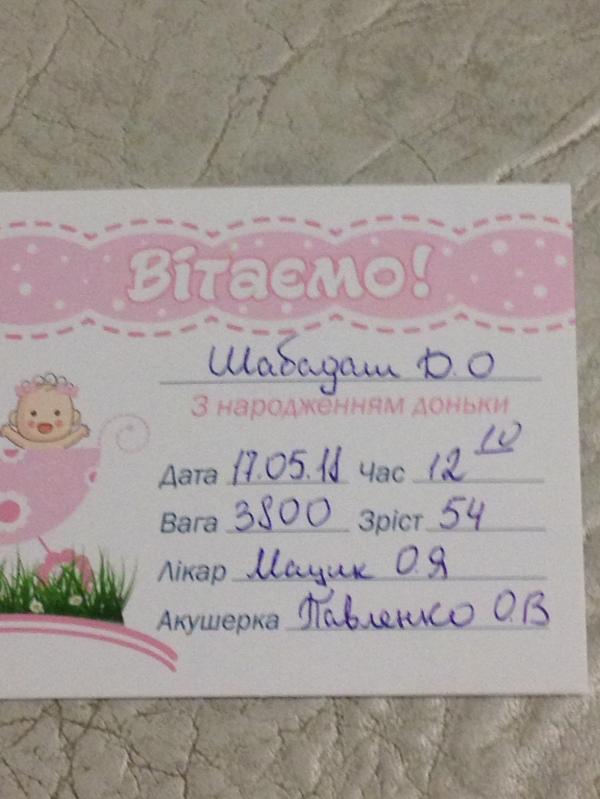 Вітаємо!
Шабадаш Ю.О
З народженням доньки
Дата 17.05.18 Час 12 10
Вага 3800 Зріст 54
Лікар Мацик О.Я
Акушерка Павленко О.В